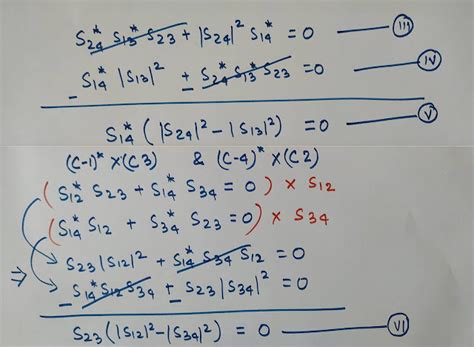 S₂₄* S₁₃* S₂₃ + |S₂₄|² S₁₄* = 0 — (III)
− S₁₄* |S₁₃|² ± S₂₄* S₁₃* S₂₃ = 0 — (IV)
S₁₄* ( |S₂₄|² − |S₁₃|² ) = 0 — (V)
(C-1)* × (C3) & (C-4)* × (C2)
( S₁₂* S₂₃ + S₁₄* S₃₄ = 0 ) × S₁₂
( S₁₄* S₁₂ + S₃₄* S₂₃ = 0 ) × S₃₄
S₂₃ |S₁₂|² + S₁₄* S₃₄ S₁₂ = 0
⇒ − S₁₄* S₁₂ S₃₄ ± S₂₃ |S₃₄|² = 0
S₂₃ ( |S₁₂|² − |S₃₄|² ) = 0 — (VI)